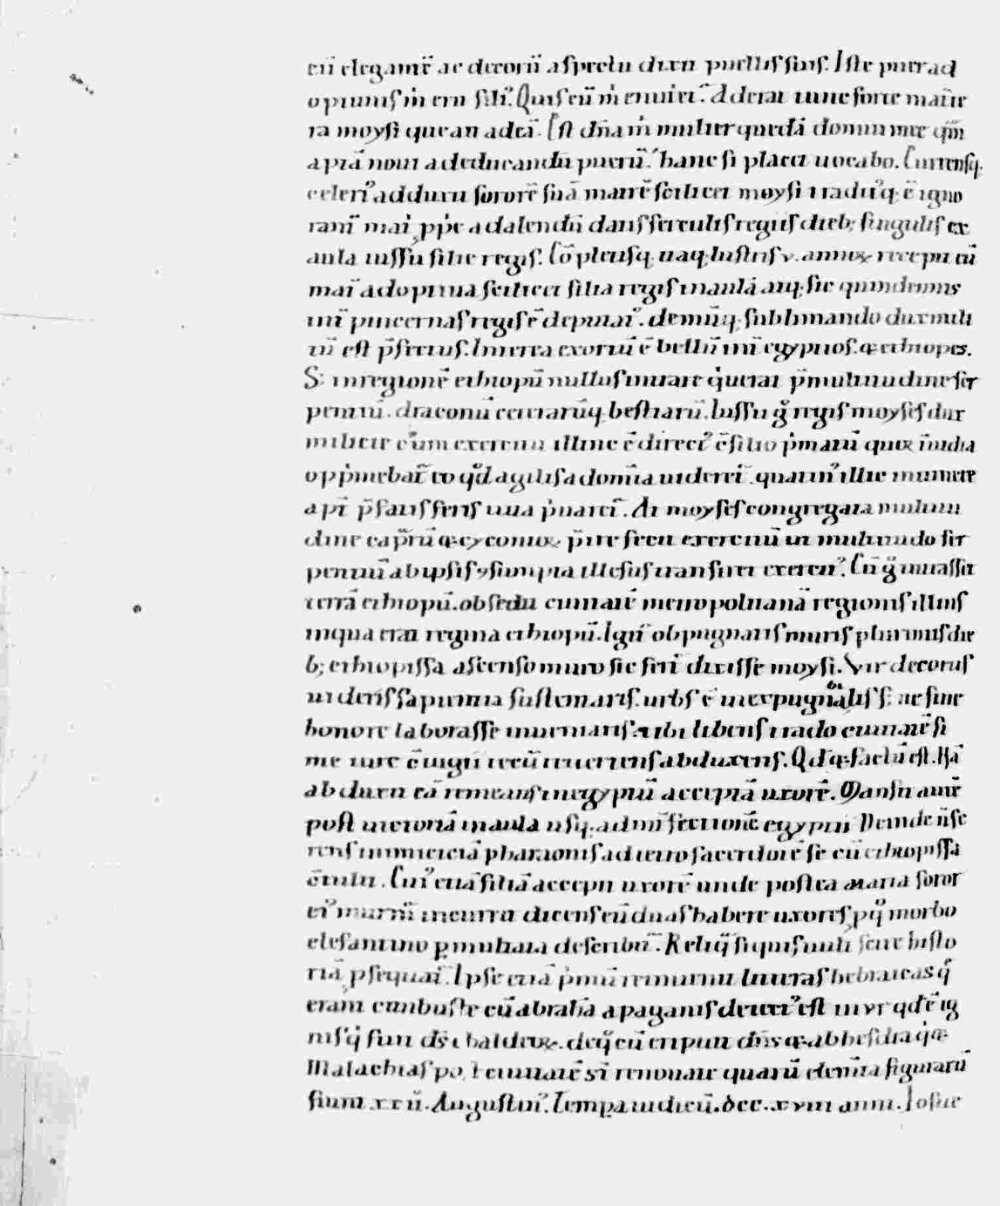 eū elegant̄ ac decorū aspectu dixit puellis suis. Iste puer ad
optiuus m̄ erit fili᾽. Quis eū m̄ enutriet᾽. Aderat tunc forte mat̄te
ra moysi que an adeā. Est dn̄a m̄ mulier quedā domui mee q̄m
aptā noui ad educandū puerū. hanc si placet uocabo. Currensq;
celeri᾽ adduxit sororē suā matrē scilicet moysi tradit᾽q; ē igno
rant̄ mat̄ pp̄e ad alendū dans ferculis regiis dieb; singulis ex
aula iussu filie regis. Cō pletisq; itaq; lustris v. annoꝝ recepit eū
mat̄ adoptiua scilicet filia regis in aulā atq; sic quindennis
int̄ pincernas regis ē deputat᾽. demūq; sublimando dux mili
tū est p̄fectus. Interea exortū ē bellū int̄ egyptios. & ethiopes.
S; in regionē ethiopū nullus intrare q̄uerat p̄ multitudine ser
pentiū. draconū ceterarūq; bestiarū. Iussu g̊ regis moyses dux
milicie cum exercitu illuc ē direct᾽
opp̄mebat᾽ eo qd̄ agilis ad omnia uideret᾽.
At moyses congregata multitu
dine
pentiū ab ipsis
terrā ethiopū. obsedit ciuitatē metropolitanā regionis illius
in qua erat regina ethiopū. Igit᾽ obpugnatis muris plurimis die
b; ethiopissa ascenso muro sic fert᾽ dixisse moysi. Vir decorus
uideris sapientia sustentaris. urbs ē inexpugnabilis s; ne sine
honore laborasse inueniaris. tibi libens trado ciuitatē si
me iure c̄iugii tecū iturus abduxeris. Qd̄ & factū est. Hā
abduxit eā remeans in egyptū acceptā uxorē. Mansit aut̄
post uictoriā in aula usq; ad int̄fectionē egyptii Deinde
rens inimiciciā pharaonis ad ietro sacerdotē se cū ethiopissa
c̄tulit. Cui᾽ etiā filiā accepit uxorē unde postea maria soror
ei᾽ murm̄ incurrit dicens eū duas habere uxores p q̊ morbo
elefantino p̱ multata describit᾽. Reliq̄ siquis uult scire histo
riā p̄sequat᾽. Ipse etiā p̄mū reinuenit litteras hebraicas q̄
erant cumbuste cū abrahā a paganis deiect᾽ est in vr qd̄ ē ig
nis q̄ sunt
Malachias po. t ciuitatē s̄t renouate quarū elem̄ta figurarū
sunt xxii. Augustin᾽. Tempa iudicū. dcc. xviii anni. Iosue